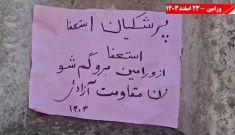 ورامین - ۲۳ اسفند۱۴۰۳
پزشکیان استعفا
استعفا
از ورامین برو گم شو
زن مقاومت آزادی
۱۴۰۳